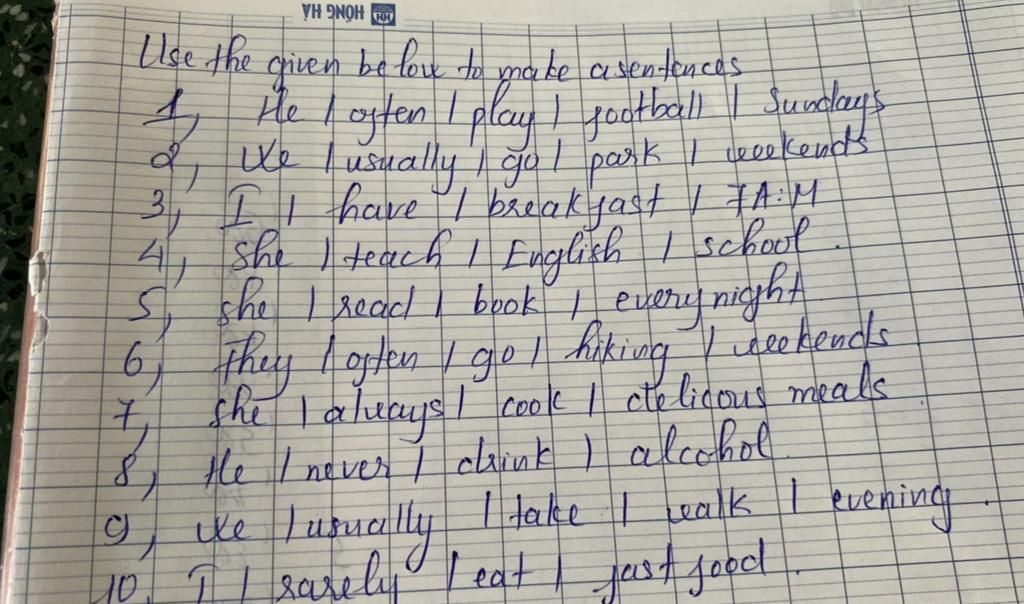 HONG HA HH
Use the given below to make a sentences
1, He / often / play / football / Sundays
2, We / usually / go / park / weekends
3, I / have / breakfast / 7A:M
4, She / teach / English / school.
5, she / read / book / every night
6, They / often / go / hiking / weekends
7, she / always / cook / delicious meals
8, He / never / drink / alcohol
9, We / usually / take / walk / evening.
10, I / rarely / eat / fast food.